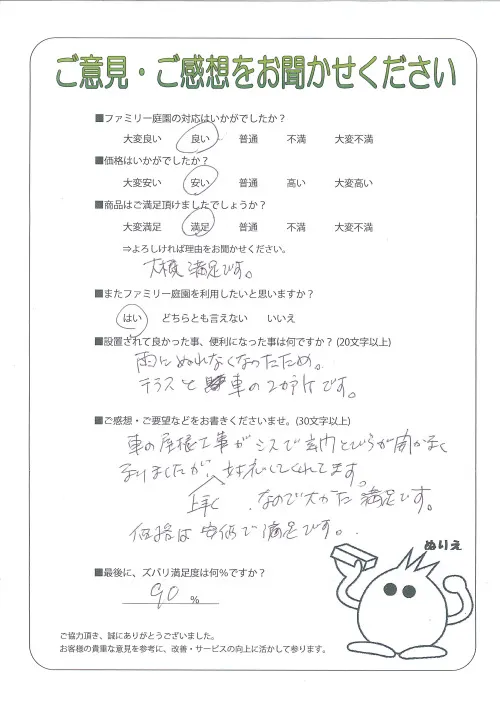 ご意見・ご感想をお聞かせください
■ファミリー庭園の対応はいかがでしたか？
大変良い 良い 普通 不満 大変不満
■価格はいかがでしたか？
大変安い 安い 普通 高い 大変高い
■商品はご満足頂けましたでしょうか？
大変満足 満足 普通 不満 大変不満
⇒よろしければ理由をお聞かせください。
大様 満足です。
■またファミリー庭園を利用したいと思いますか？
はい どちらとも言えない いいえ
■設置されて良かった事、便利になった事は何ですか？(20文字以上)
雨にぬれなくなったため。
テラスと 車の2か所です。
■ご感想・ご要望などをお書きくださいませ。(30文字以上)
車の屋根工事がミスで玄関とびらが開かなく
なりましたが、対応してくれてます。
上手く
なので大かた満足です。
価格は安価で満足です。
ぬりえ
■最後に、ズバリ満足度は何％ですか？
90 %
ご協力頂き、誠にありがとうございました。
お客様の貴重な意見を参考に、改善・サービスの向上に活かして参ります。